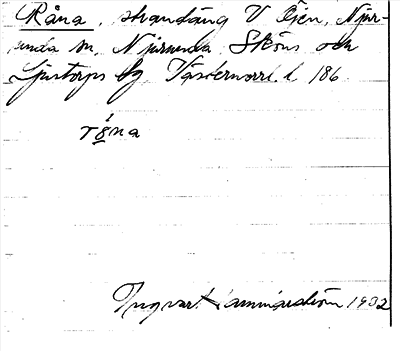 Råna, strandäng V Öjen, Njur-
unda sn, Njurunda Sköns och
Ljustorps tg Västernorrl. l. 186.
rǻ̱na
Ingvar Hammarström 1932